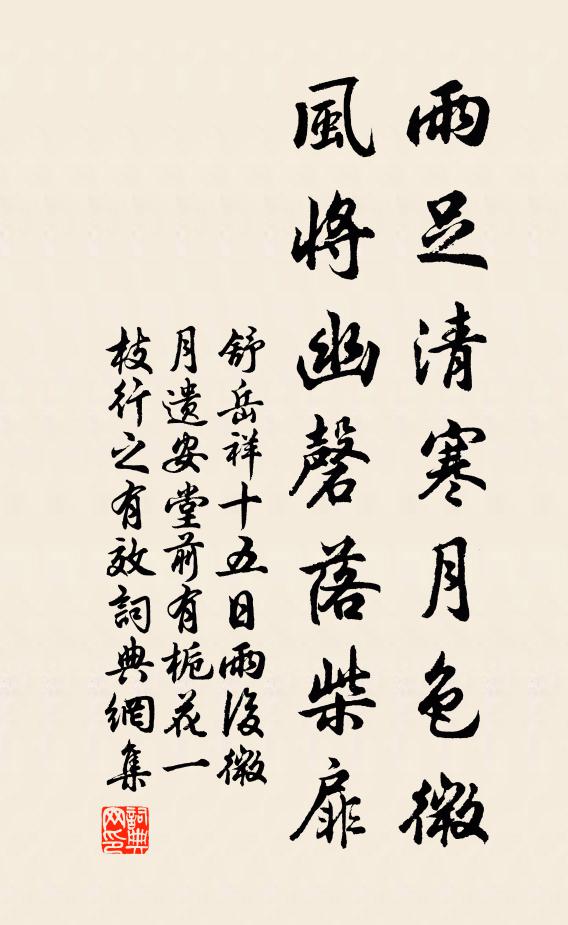 雨足清寒月色微
風將幽磬落柴扉
舒岳祥十五日雨後微
月遺安堂前有梔花一
枝行之有效詞典網集
詞典網印